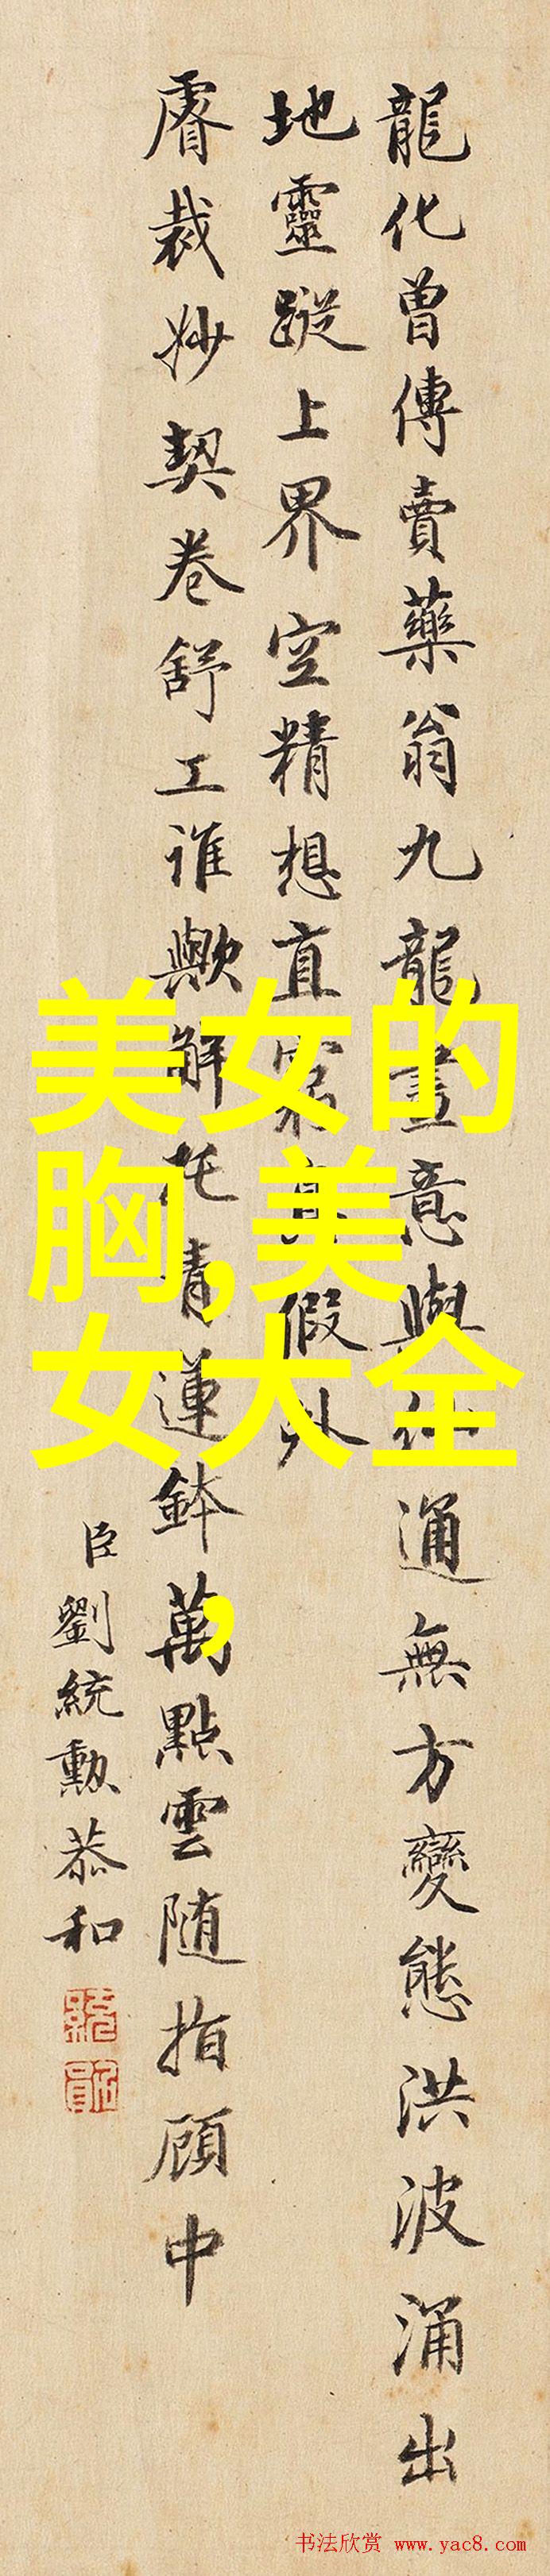 龍化曾傳賣藥翁九龍畫意與仙通無方變態洪波涌出
地靈蹤上界空精想直窮真假外
睿裁妙契卷舒工誰歟解托青蓮鉢萬點雲随指顧中
臣劉統勳恭和
美女的
胸,美
女大全
,
书法欣赏 www.yac8.com